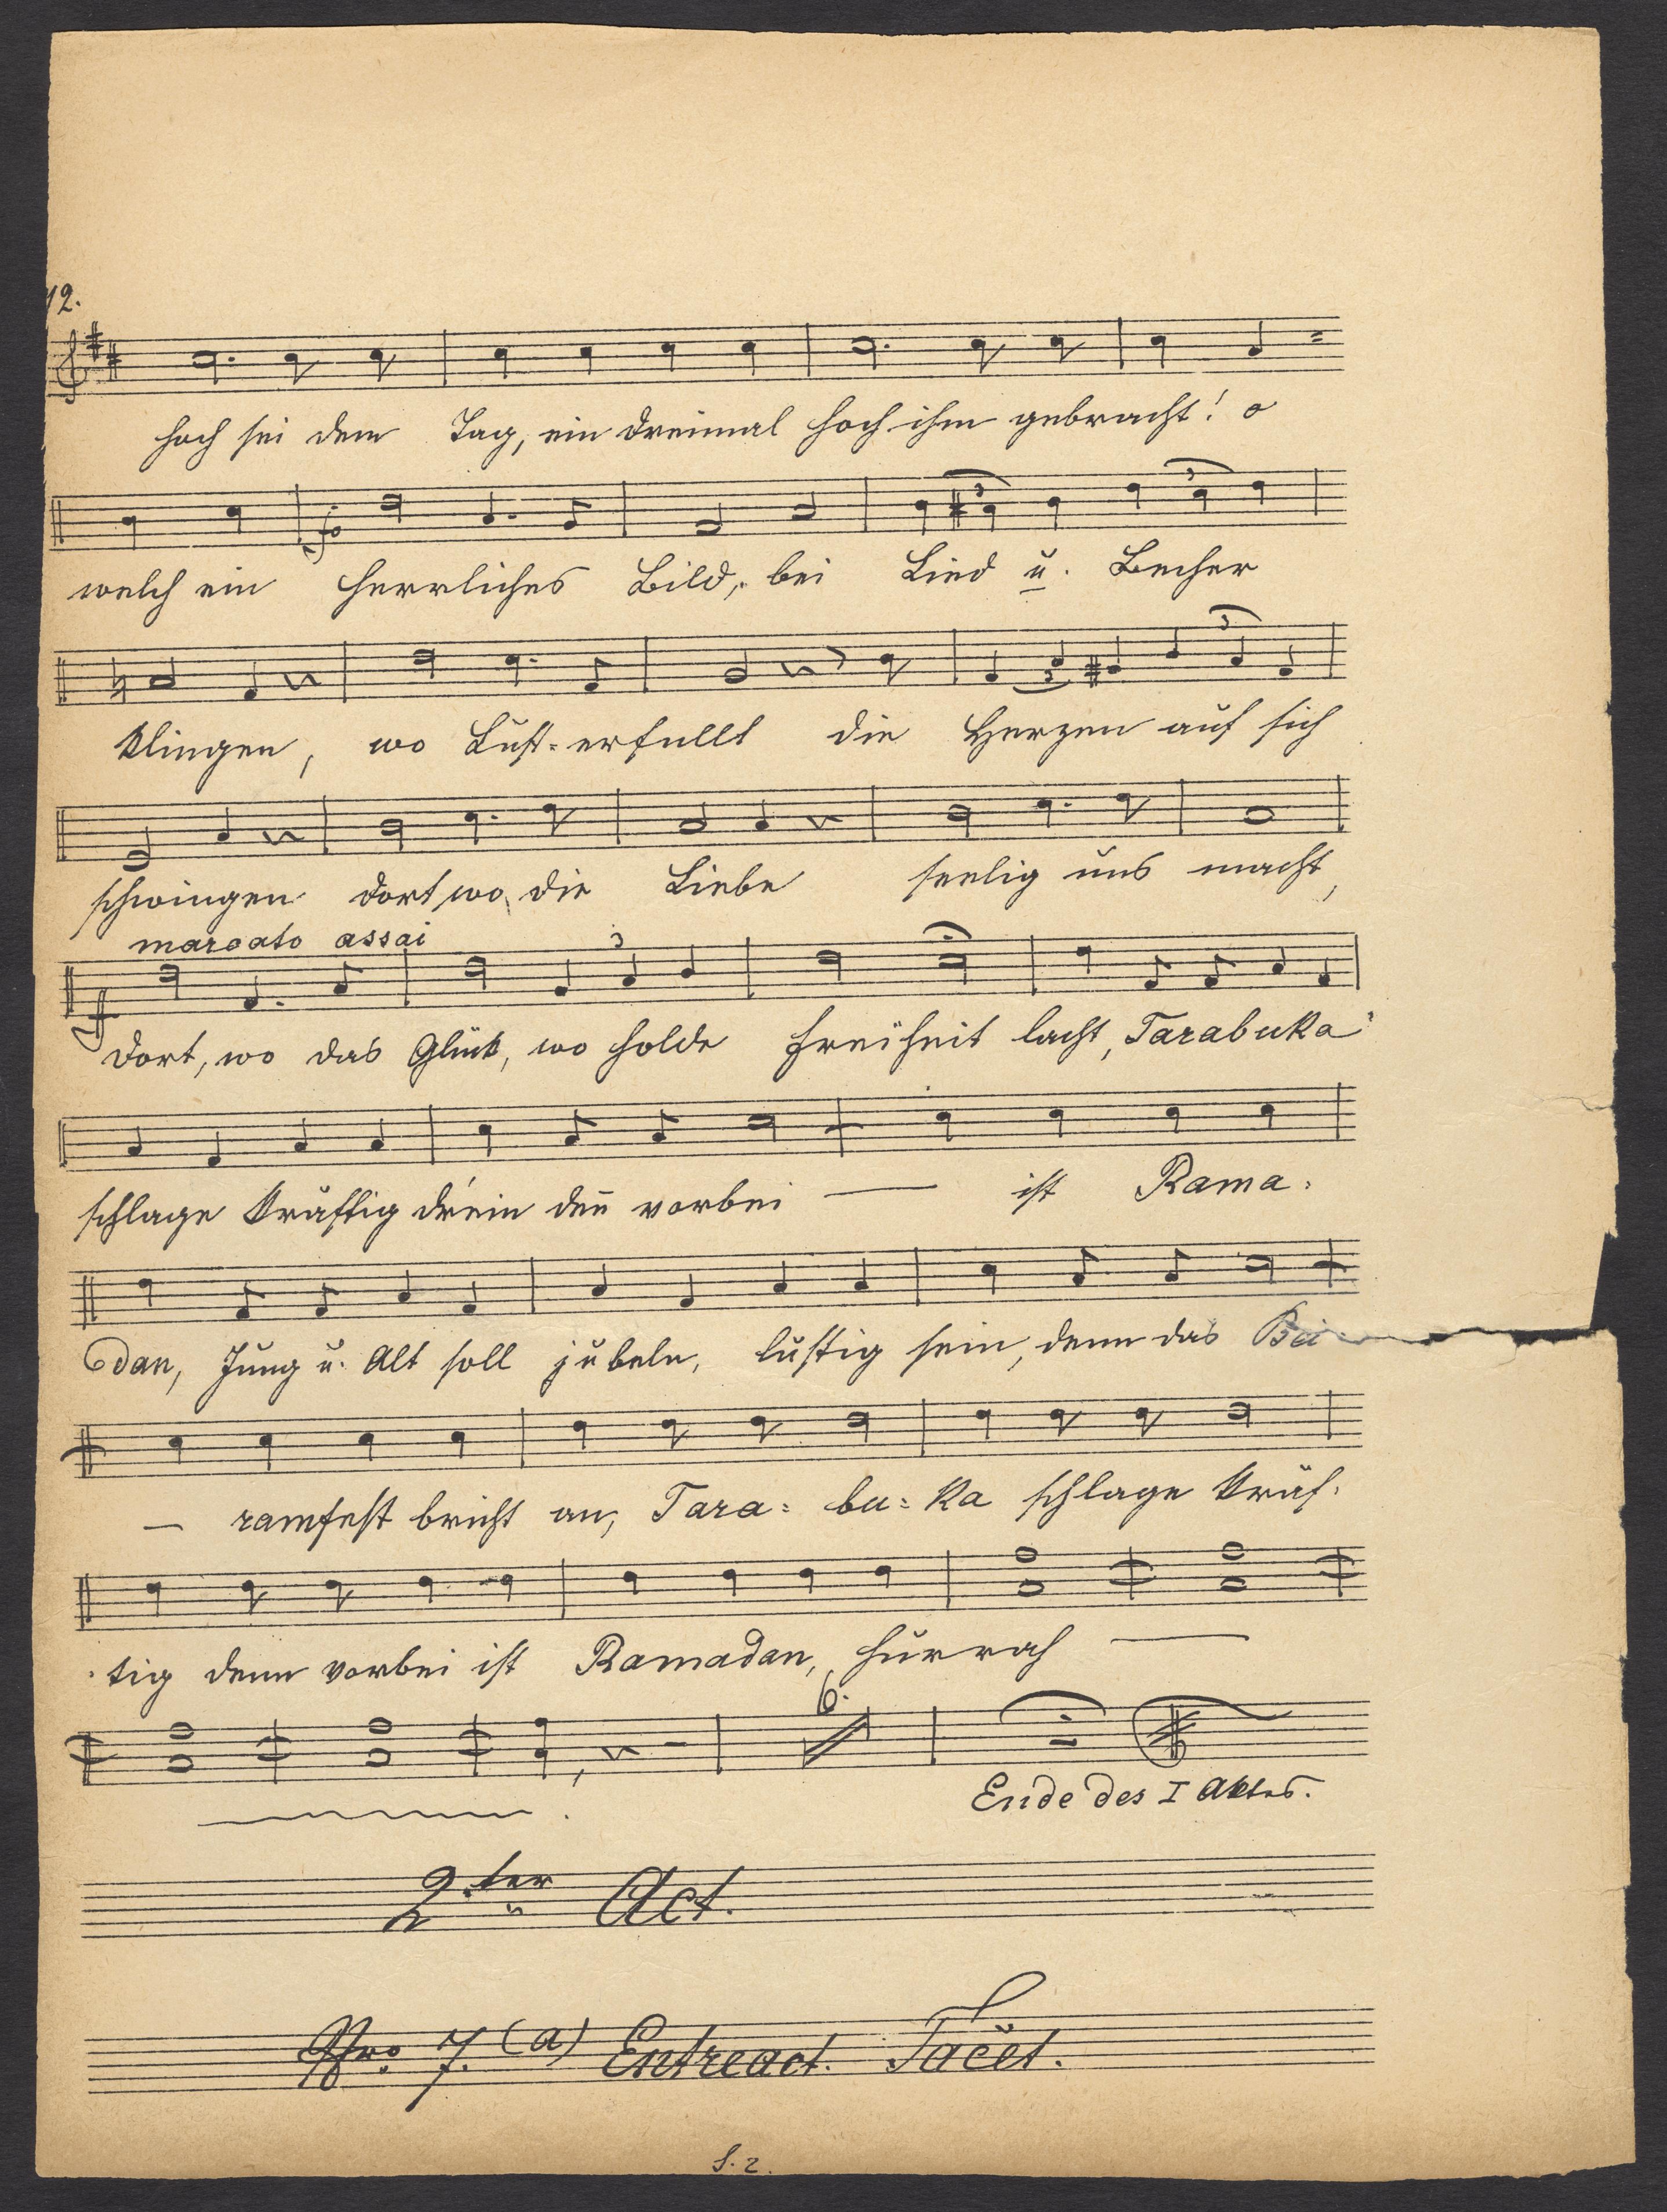 12.
hoch sei dem Tag, ein dreimal hoch ihm gebracht! o
welch ein herrliches Bild, bei Lied u. Becher
klingen, wo Lust-erfüllt die Herzen auf sich
schwingen dort, wo die Liebe seelig uns macht,
marcato assai
3
dort, wo das Glück, wo holde Freiheit lacht, Tarabuka
schlage kräftig drein den̄ vorbei — ist Rama-
dan, Jung u. Alt soll jubeln, lustig sein, denn das Bei
— ramfest bricht an, Tara= bu= ka schlage kräf-
tig denn vorbei ist Ramadan, hurrah —
6.
Ende des I Aktes.
2ter Act.
Nro 7. (a) Entreact. Tacet.
S. 2.